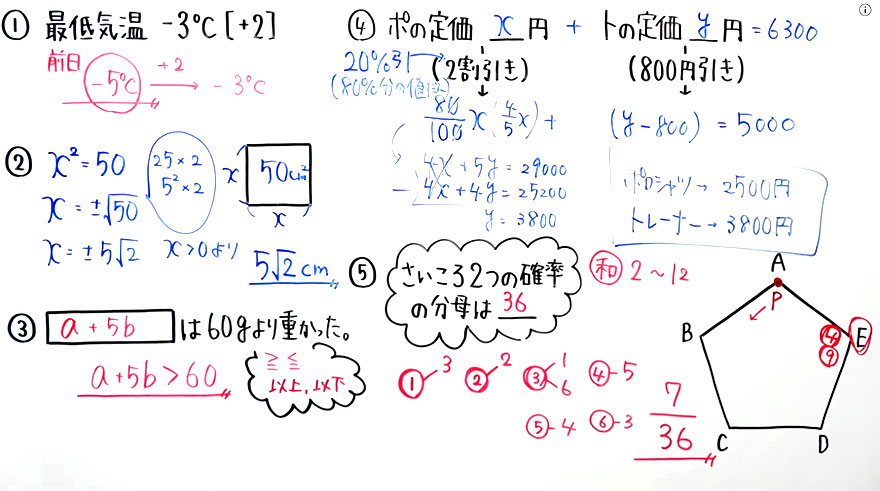 ① 最低気温 -3℃ [+2]
前日
-5℃ +2 → -3℃
② x²=50
25×2
5²×2
x=±√50
x=±5√2 x>0より
x 50cm²
x
5√2cm
③ a+5b は60gより重かった。
a+5b>60
≧ ≦
以上、以下
④ ポの定価 x 円 + トの定価 y 円 =6300
20%引
(2割引き) (800円引き)
(80%分の値は)
80/100 x (4/5 x) + (y-800) = 5000
4x+5y=29000
- 4x+4y=25200
y=3800
ポロシャツ→ 2500円
トレーナー→ 3800円
⑤ さいころ2つの確率
の分母は 36
和 2~12
①-3 ②-2 ③-1 ④-5
6
⑤-4 ⑥-3
7/36
A
P
B
E
④
⑨
C
D